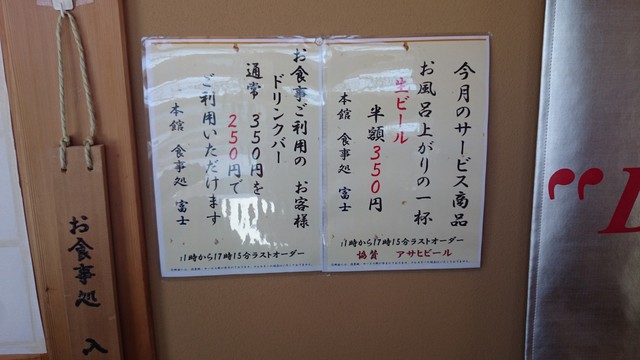 今月のサービス商品
お風呂上がりの一杯
生ビール
半額350円
本館 食事処 富士
11時から17時15分ラストオーダー
協賛 アサヒビール
お食事ご利用の お客様
ドリンクバー
通常 350円を
250円で
ご利用いただけます
本館 食事処 富士
11時から17時15分ラストオーダー
お食事処 入